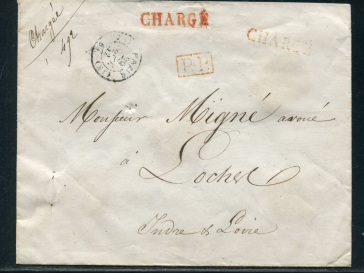 Chargé
CHARGÉ
CHARGÉ
PARIS
P.P.
Monsieur Migné avoué
à
Loches
Indre & Loire